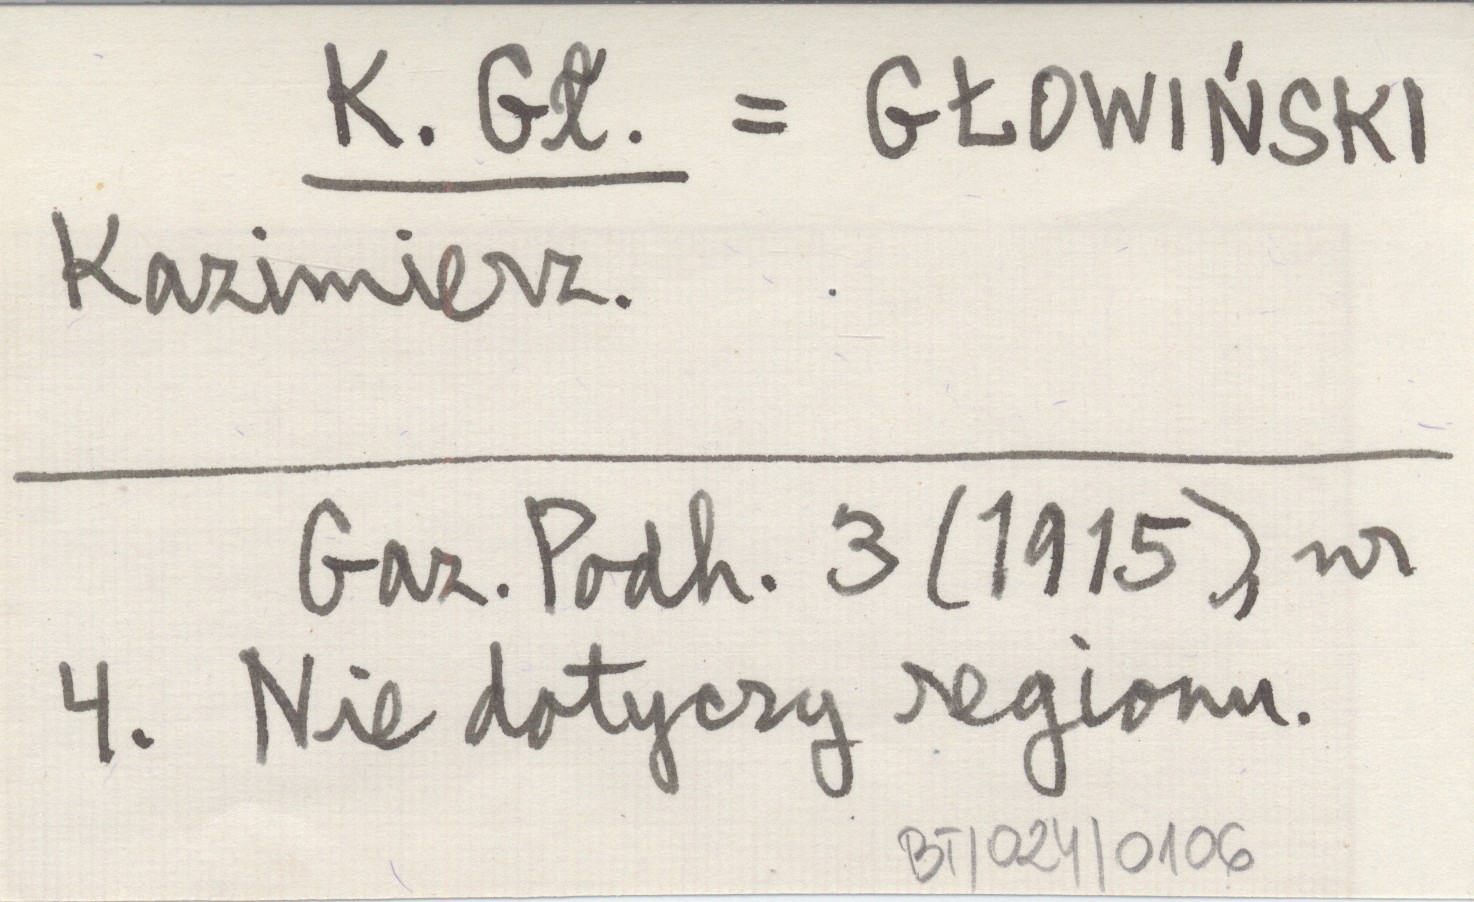 K. Gł. = GŁOWIŃSKI
Kazimierz.
Gaz. Podh. 3 (1915), nr
4. Nie dotyczy regionu.
BT/024/0106